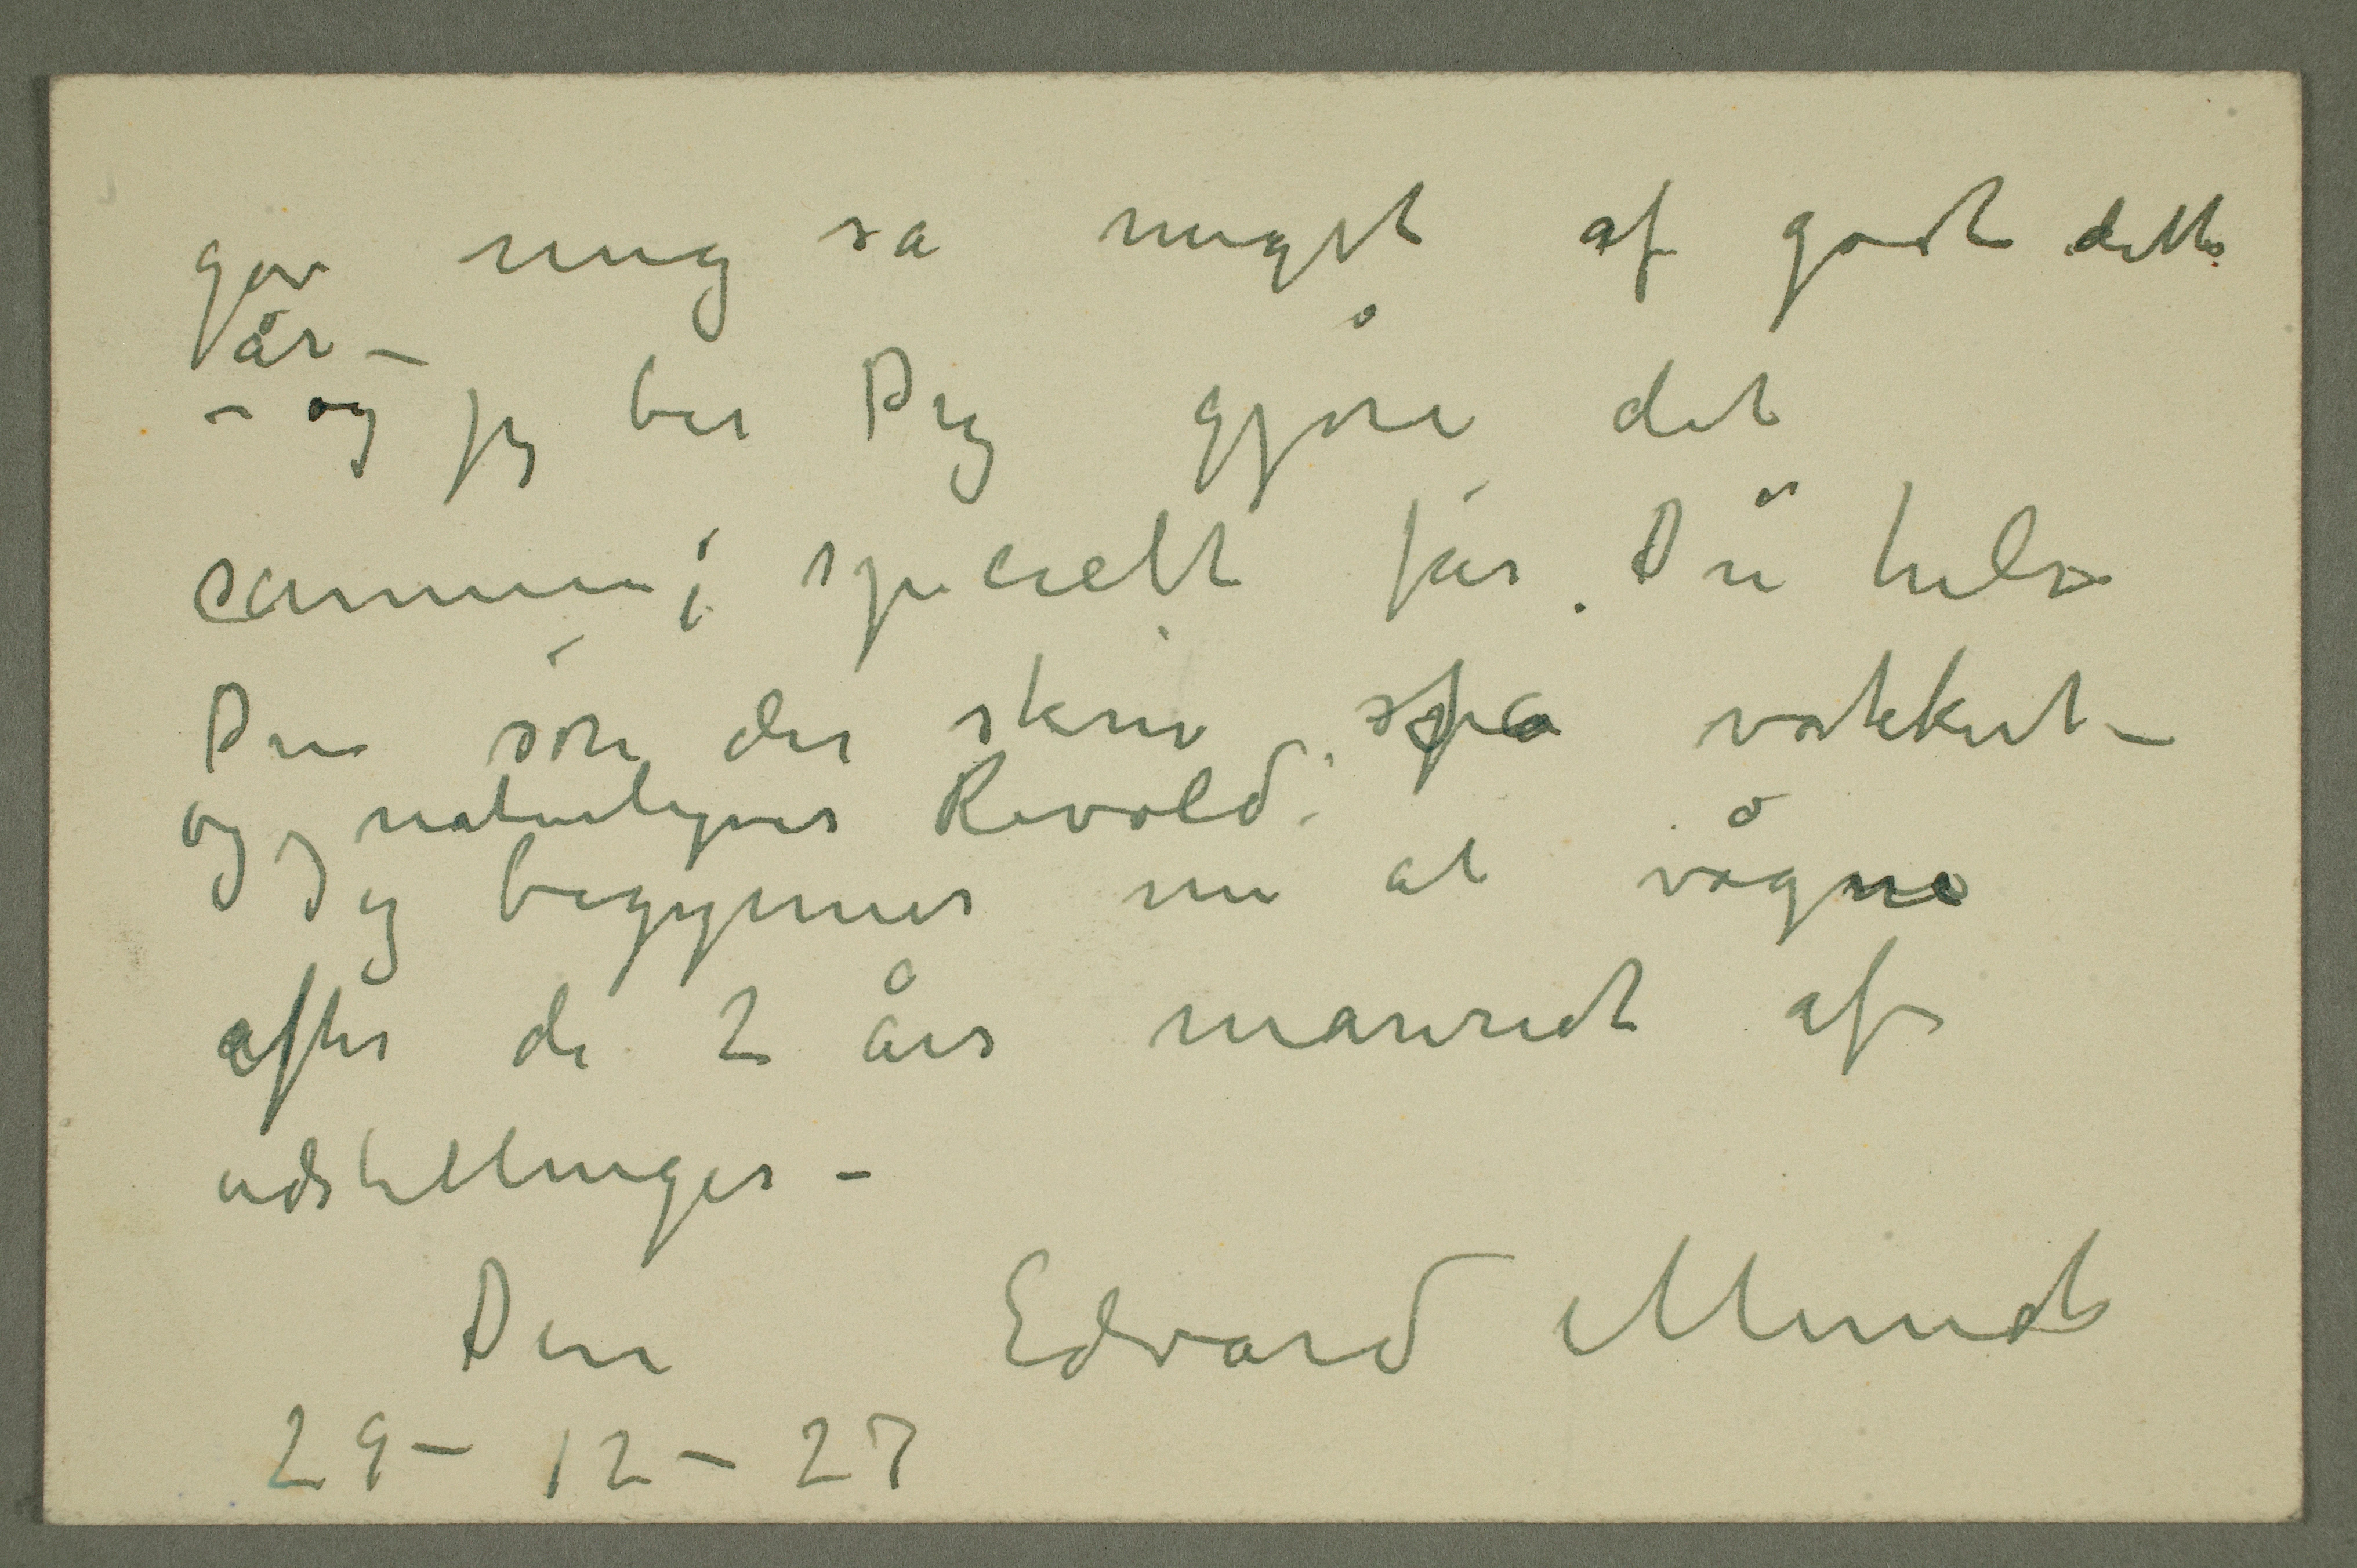 gav mig så meget af godt dette
år –
– og jeg ber Dig gjøre det
samme; specielt får Du hilse
Din søn der skrev så vakkert –
og naturligvis Revold.
Jeg begynner nu at vågne
efter de 2 års mareridt af
udstillinger –
Din Edvard Munch
29 – 12 – 27